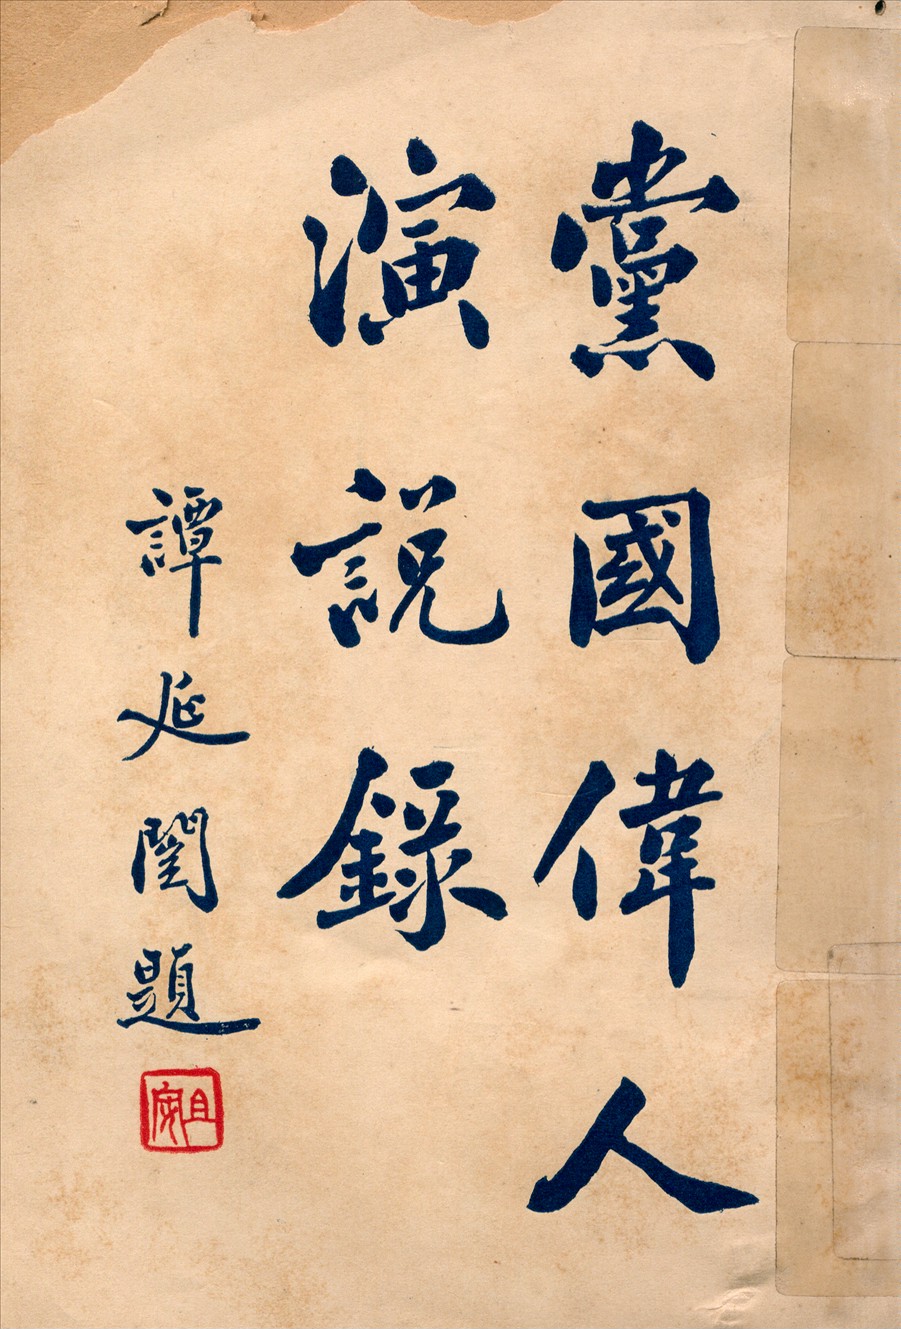 黨國偉人
演説錄
譚延闓題